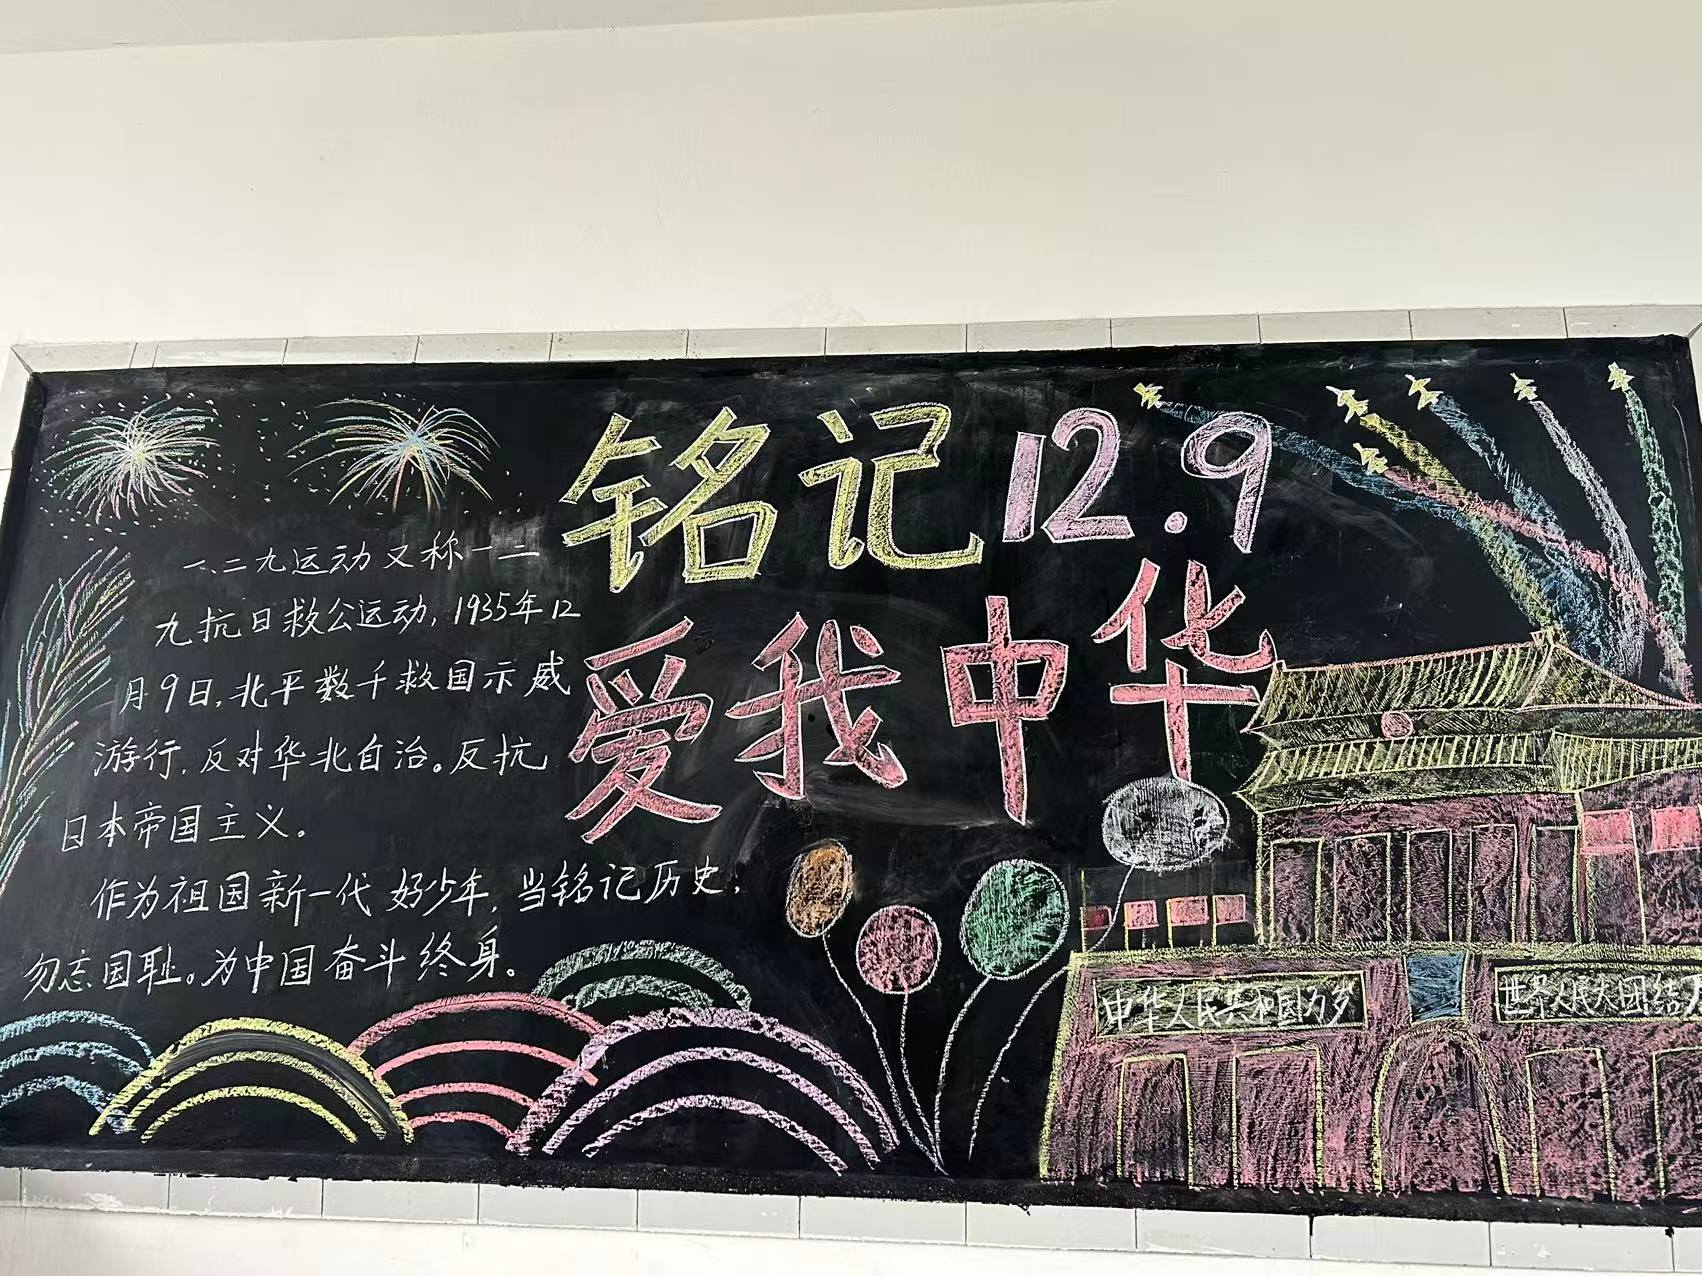 铭记12.9
爱我中华
一、二九运动又称一二
九抗日救公运动，1935年12
月9日，北平数千救国示威
游行，反对华北自治。反抗
日本帝国主义。
作为祖国新一代好少年，当铭记历史，
勿忘国耻。为中国奋斗终身。
中华人民共和国万岁
世界人民大团结万